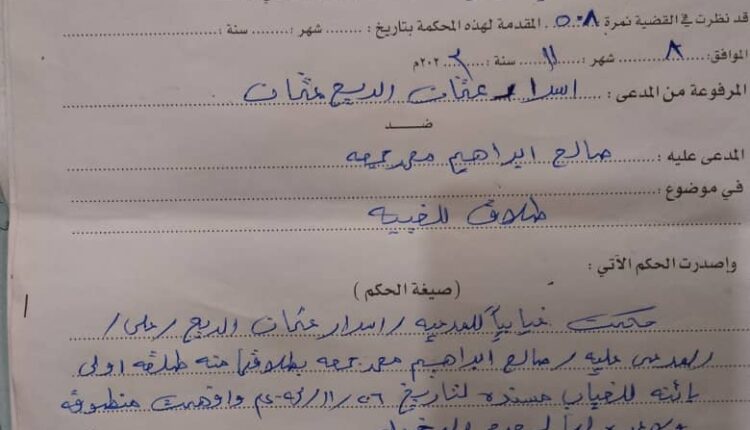 قد نظرت في القضية نمرة ٥٠٨ المقدمة لهذه المحكمة بتاريخ : ........ شهر : ........ سنة : ........
الموافق : ٨ شهر : ١١ سنة : ٢٠٢٣م
المرفوعة من المدعى : اسرار عثمان الربيع عثمان
ضد
المدعى عليه : صالح ابراهيم محمد جمعه
في موضوع :
طلاق للغيبه
وإصدرت الحكم الآتي :
(صيغة الحكم)
حكمت غيابياً للمدعيه / اسرار عثمان الربيع / على /
المدعى عليه / صالح ابراهيم محمد جمعه بطلاقها منه طلقه اولى
بائنه للغياب مسنده لتاريخ وافهمت منطوقه